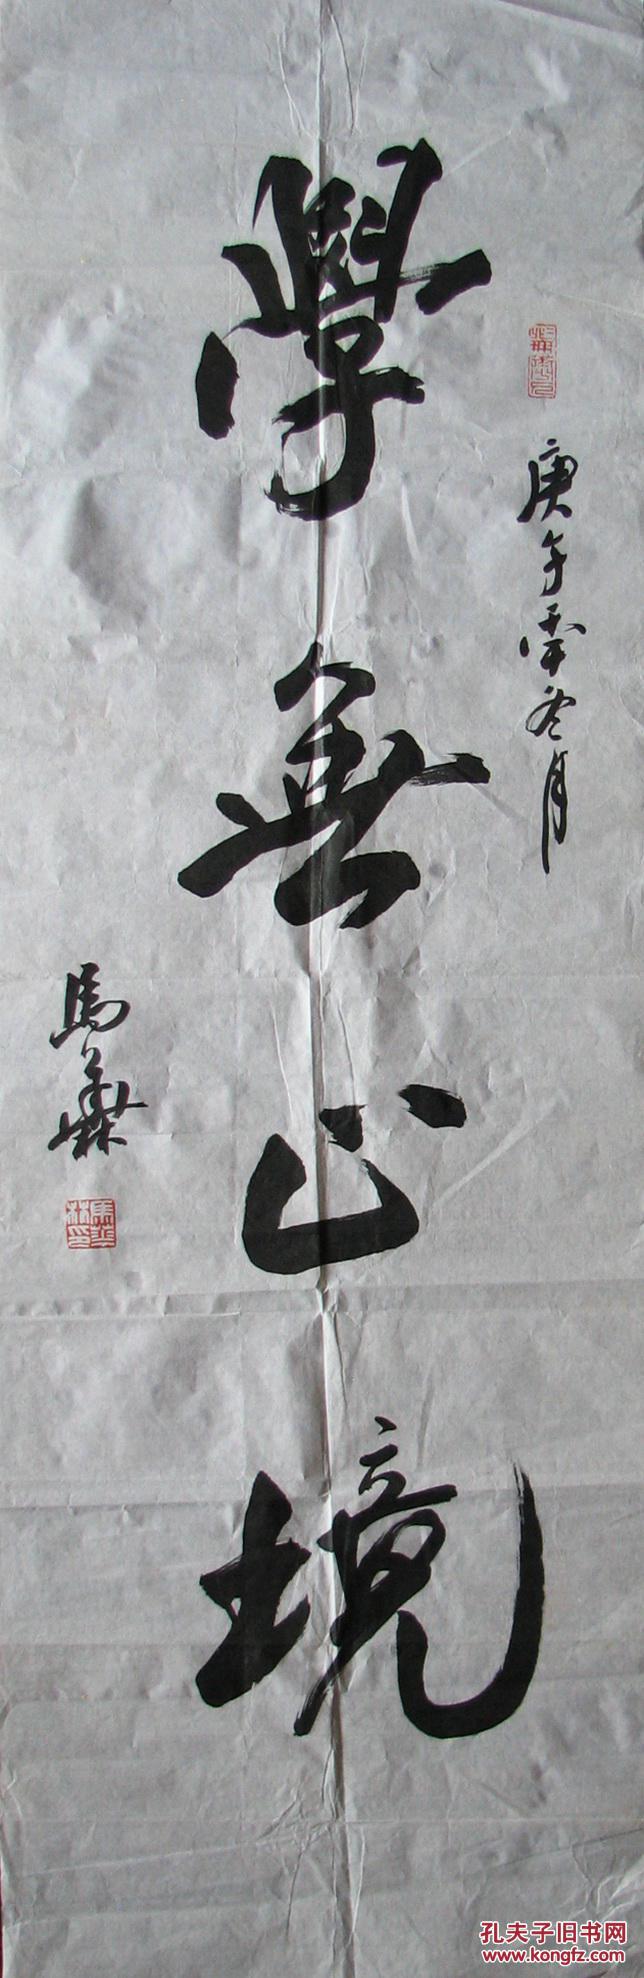 庚午年冬月
學無止境
馬
孔夫子旧书网
www.kongfz.com